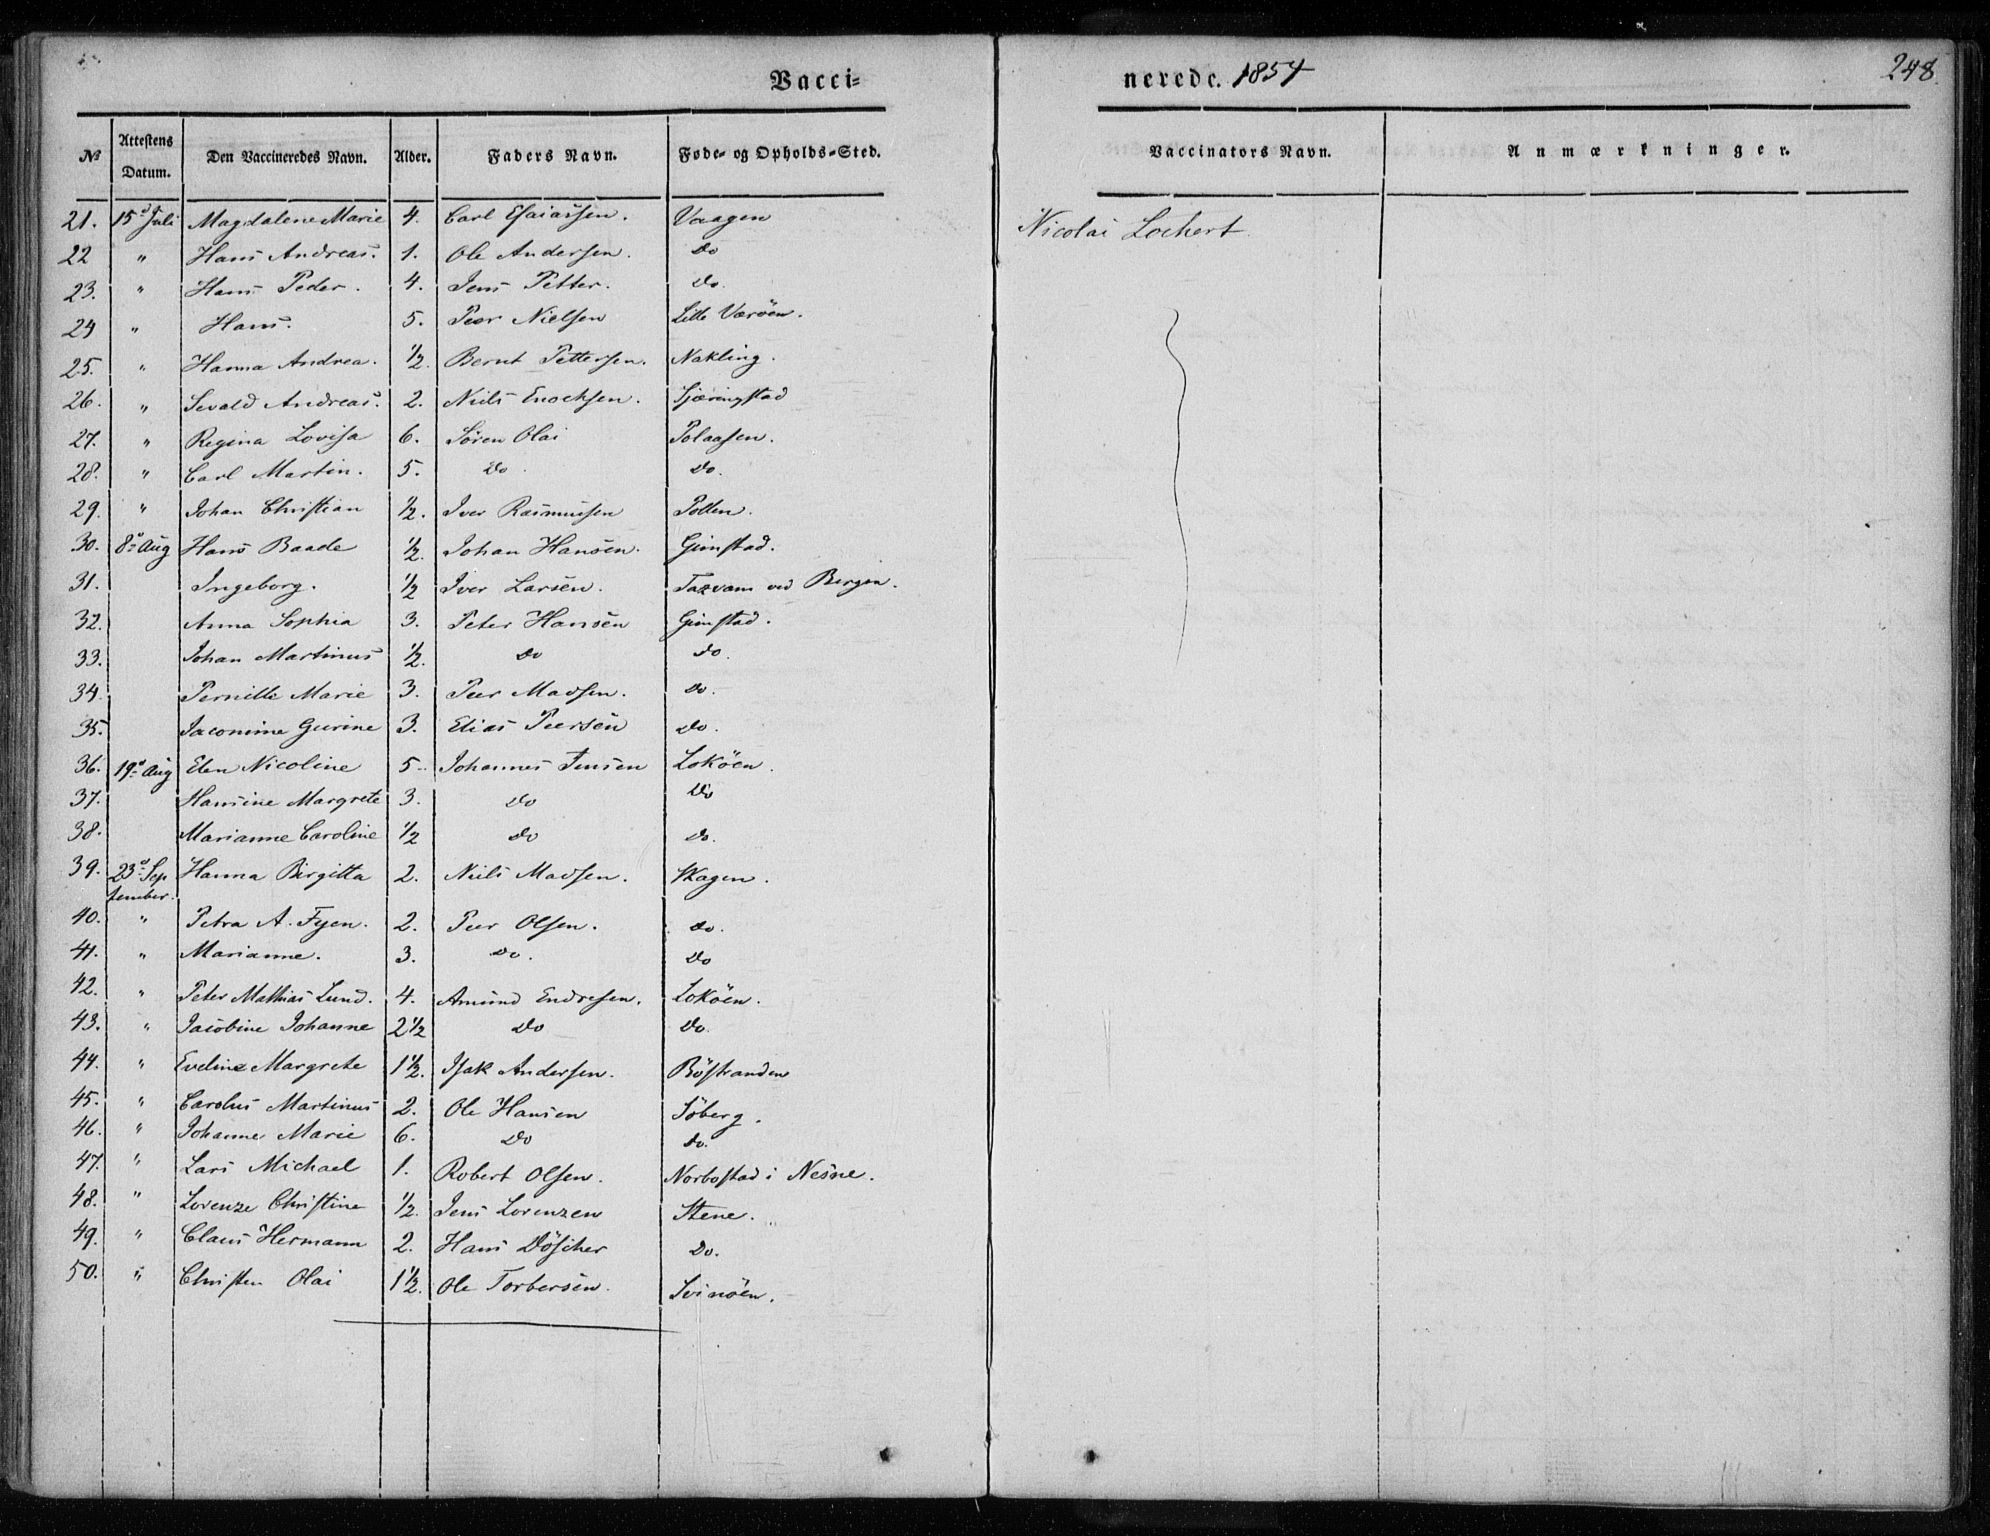 Vacci= nerede. 1854 248.
№ Attestens Datum. Den Vaccineredes Navn. Alder. Faders Navn. Føde- og Opholds-Sted. Vaccinators Navn. Anmærkninger.
21. 15de Juli Magdalene Marie 4. Carl Esaiassen. Vaagen Nicolai Lochert
22 " Hans Andreas. 1. Ole Andersen. Do
23. " Hans Peder. 4. Jens Petter. Do.
24 " Hans. 5. Peer Nielsen Lille Værøen.
25. " Hanna Andrea. ½. Bernt Pettersen. Nakling.
26. " Sevald Andreas. 2. Niels Enochsen. Sjæringstad
27. " Regina Lovisa 6. Søren Olai Polaasen.
28. " Carl Martin. 5. Do. Do.
29. " Johan Christian ½. Iver Rasmussen Pollen.
30. 8de Aug Hans Baade ½. Johan Hansen. Gimstad.
31. Ingeborg. ½ Iver Larsen. ved Bergen.
32. Anna Sophia 3. Peter Hansen Gimstad.
33. Johan Martinus ½. Do do.
34. Pernille Marie 3. Peer Madsen. Do.
35. Jaconime Gurine 3. Elias Peersen Do.
36. 19de Aug Elen Nicoline 5. Johannes Jensen Lokøen.
37. Hansine Margrete 3. Do Do
38. Marianne Caroline ½ Do Do.
39. 23de Sep Hanna Birgitta 2. Niels Madsen. Skagen.
tember.
40. " Petra A. Fyen. 2. Peer Olsen. Do.
41. " Marianne. 3. Do. Do
42. " Peter Mathias Lund. 4. Amund Endresen. Lokøen.
43. " Jacobine Johanne 2½ Do Do.
44. " Eveline Margrete 1½. Isak Andersen. Bøstranden
45. " Carolus Martinus 2. Ole Hansen Søberg.
46. " Johanne Marie 6. Do Do.
47. " Lars Michael 1. Robert Olsen. Norbostad i Nesne.
48. " Lorenze Christine ½. Jens Lorenzen Stene.
49. " Claus Hermann 2. Hans Döscher Do.
50. " Christen Olai 1½. Ole Torbersen. Svinøen.